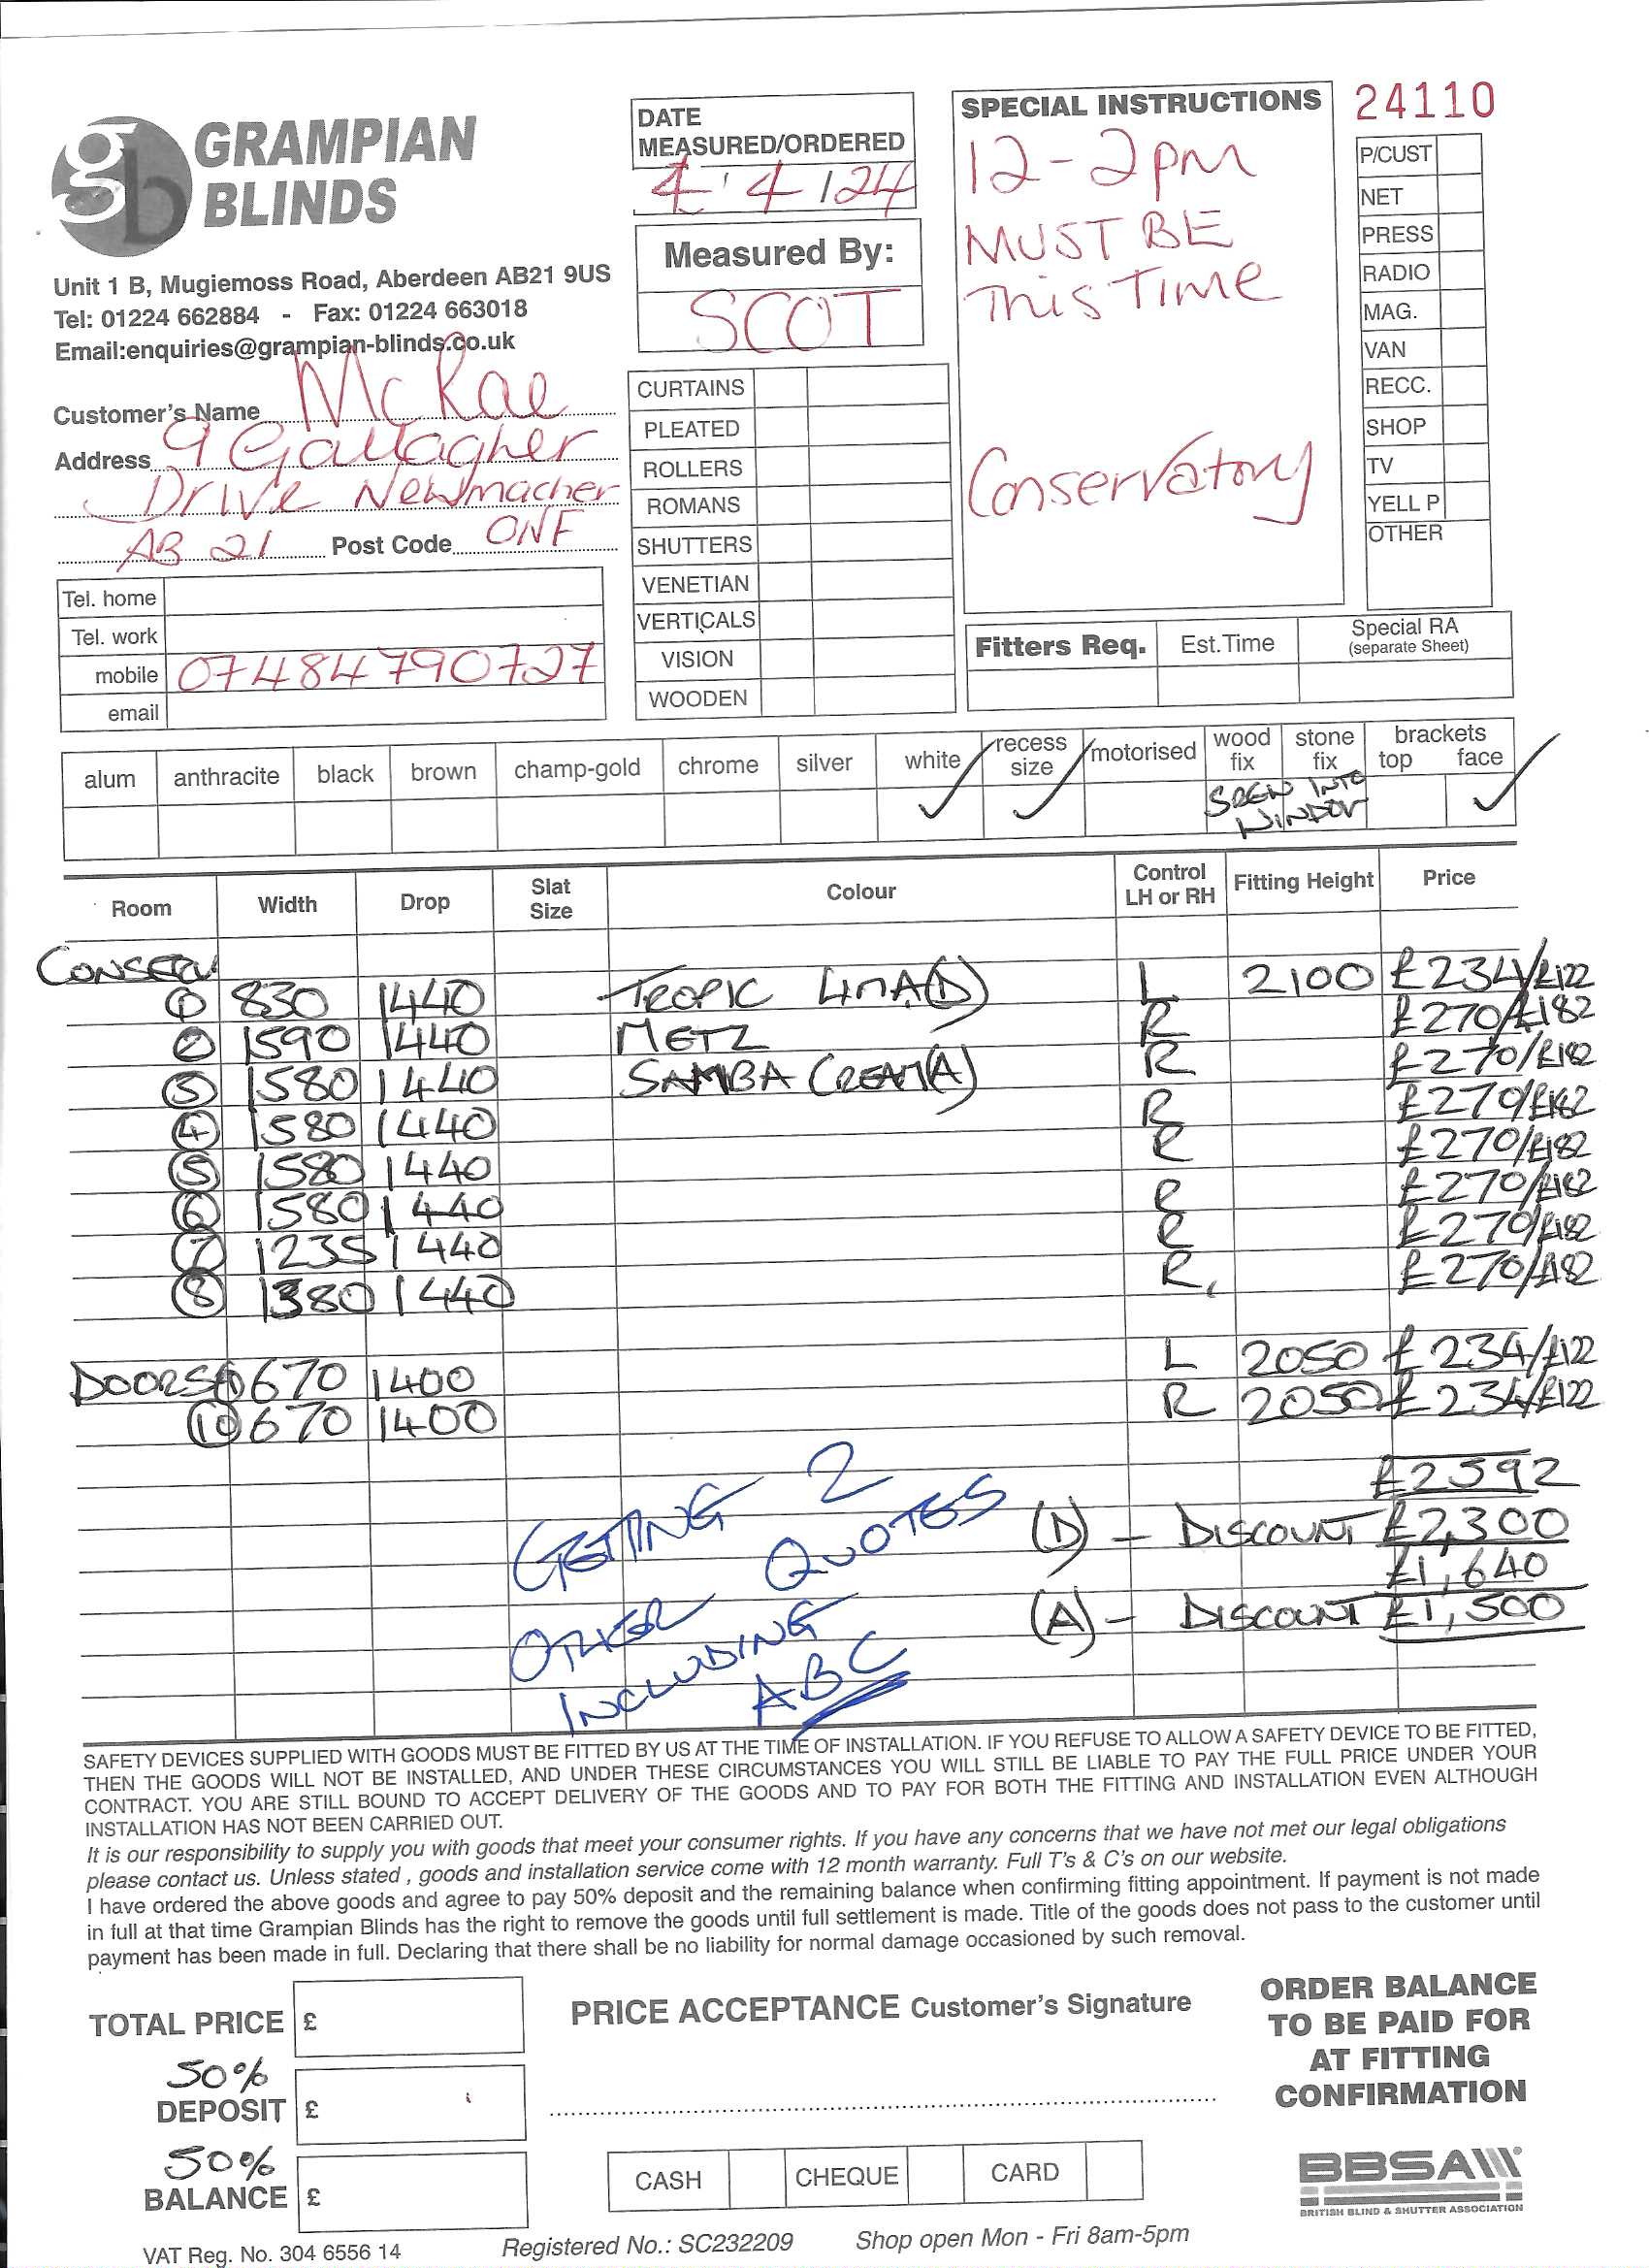 gb GRAMPIAN BLINDS
Unit 1 B, Mugiemoss Road, Aberdeen AB21 9US
Tel: 01224 662884 - Fax: 01224 663018
Email:enquiries@grampian-blinds.co.uk
Customer's Name McRae
Address 9 Gallagher
Drive Newmacher
AB 21 Post Code 0NF
Tel. home
Tel. work
mobile 07484790727
email
DATE
MEASURED/ORDERED
4/4/24
Measured By:
SCOT
CURTAINS
PLEATED
ROLLERS
ROMANS
SHUTTERS
VENETIAN
VERTICALS
VISION
WOODEN
SPECIAL INSTRUCTIONS
12-2pm
MUST BE
This Time
Conservatory
24110
P/CUST
NET
PRESS
RADIO
MAG.
VAN
RECC.
SHOP
TV
YELL P
OTHER
Fitters Req. Est.Time Special RA
(separate Sheet)
alum anthracite black brown champ-gold chrome silver white recess size motorised wood fix stone fix brackets top face
✓ ✓ INTO WINDOW ✓
Room Width Drop Slat Size Colour Control LH or RH Fitting Height Price
CONSERV
① 830 1440 TROPIC LIMA(D) L 2100 £234/£122
② 1590 1440 METZ R £270/£182
③ 1580 1440 SAMBA CREAM(A) R £270/£182
④ 1580 1440 R £270/£182
⑤ 1580 1440 R £270/£182
⑥ 1580 1440 R £270/£182
⑦ 1235 1440 R £270/£182
⑧ 1380 1440 R £270/£182
DOORS ⑨ 670 1400 L 2050 £234/£122
⑩ 670 1400 R 2050 £234/£122
£2592
(D) - DISCOUNT £2,300
£1,640
(A) - DISCOUNT £1,500
GETTING 2
OTHER QUOTES
INCLUDING
ABC
SAFETY DEVICES SUPPLIED WITH GOODS MUST BE FITTED BY US AT THE TIME OF INSTALLATION. IF YOU REFUSE TO ALLOW A SAFETY DEVICE TO BE FITTED,
THEN THE GOODS WILL NOT BE INSTALLED, AND UNDER THESE CIRCUMSTANCES YOU WILL STILL BE LIABLE TO PAY THE FULL PRICE UNDER YOUR
CONTRACT. YOU ARE STILL BOUND TO ACCEPT DELIVERY OF THE GOODS AND TO PAY FOR BOTH THE FITTING AND INSTALLATION EVEN ALTHOUGH
INSTALLATION HAS NOT BEEN CARRIED OUT.
It is our responsibility to supply you with goods that meet your consumer rights. If you have any concerns that we have not met our legal obligations
please contact us. Unless stated , goods and installation service come with 12 month warranty. Full T's & C's on our website.
I have ordered the above goods and agree to pay 50% deposit and the remaining balance when confirming fitting appointment. If payment is not made
in full at that time Grampian Blinds has the right to remove the goods until full settlement is made. Title of the goods does not pass to the customer until
payment has been made in full. Declaring that there shall be no liability for normal damage occasioned by such removal.
TOTAL PRICE £
50%
DEPOSIT £
50%
BALANCE £
PRICE ACCEPTANCE Customer's Signature
CASH CHEQUE CARD
ORDER BALANCE
TO BE PAID FOR
AT FITTING
CONFIRMATION
BBSA
BRITISH BLIND & SHUTTER ASSOCIATION
VAT Reg. No. 304 6556 14 Registered No.: SC232209 Shop open Mon - Fri 8am-5pm